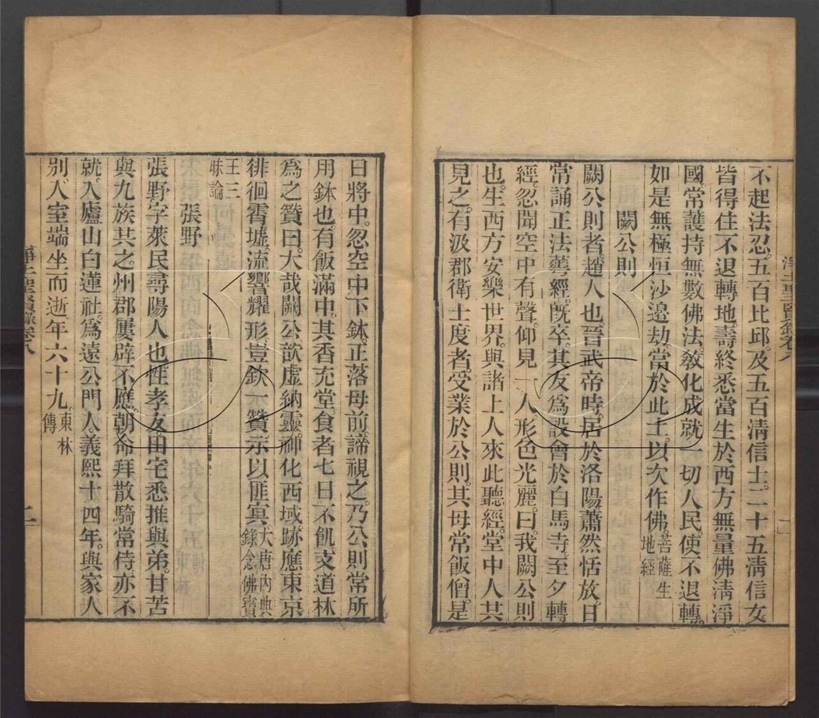 不起法忍。五百比邱及五百清信士。二十五清信女
皆得住不退轉地。壽終悉當生於西方無量佛清淨
國。常護持無數佛法。敎化成就一切人民。使不退轉。
如是無極恒沙邊劫。當於此土。以次作佛。菩薩生地經
闕公則
闕公則者。趙人也。晉武帝時。居於洛陽。蕭然恬放。日
常誦正法華經。既卒。其友爲設會於白馬寺。至夕轉
經。忽聞空中有聲。仰見一人。形色光麗。曰。我闕公則
也。生西方安樂世界。與諸上人來此聽經。堂中人共
見之。有汲郡衛士度者。受業於公則。其母常飯僧。是
淨土聖賢錄卷八
日將中。忽空中下鉢。正落母前。諦視之。乃公則常所
用鉢也。有飯滿中。其香充堂。食者七日不飢。支道林
爲之贊曰。大哉闕公。歆虛納靈。神化西域。跡應東京。
徘徊霄墟。流響耀形。豈欽一贊。示以匪冥。大唐內典錄念佛寶
王三昧論
張野
張野。字萊民。尋陽人也。性孝友。田宅悉推與弟。甘苦
與九族共之。州郡屢辟不應。朝命拜散騎常侍。亦不
就。入廬山白蓮社。爲遠公門人。義熙十四年。與家人
別。入室端坐而逝。年六十九。東林傳
淨土聖賢錄卷八
二